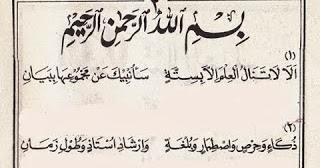 بِسْمِ اللهِ الرَّحْمٰنِ الرَّحِيْمِ
(١)
اَلَا لَا تَنَالُ الْعِلْمَ اِلَّا بِسِتَّةٍ سَأُنْبِيْكَ عَنْ مَجْمُوْعِهَا بِبَيَانٍ
(٢)
ذُكَاءٍ وَحِرْصٍ وَاصْطِبَارٍ وَبُلْغَةٍ وَاِرْشَادِ اُسْتَاذٍ وَطُوْلِ زَمَانٍ